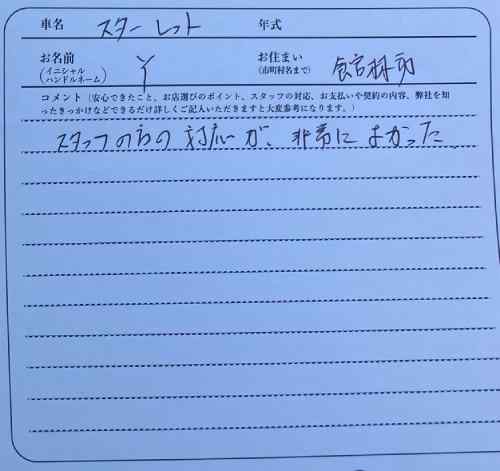 車名 スターレット 年式
お名前 (イニシャル ハンドルネーム) Y お住まい (市町村名まで) 館林市
コメント（安心できたこと、お店選びのポイント、スタッフの対応、お支払いや契約の内容、弊社を知
ったきっかけなどできるだけ詳しくご記入いただきますと大変参考になります。）
スタッフのらの対応が、非常によかった